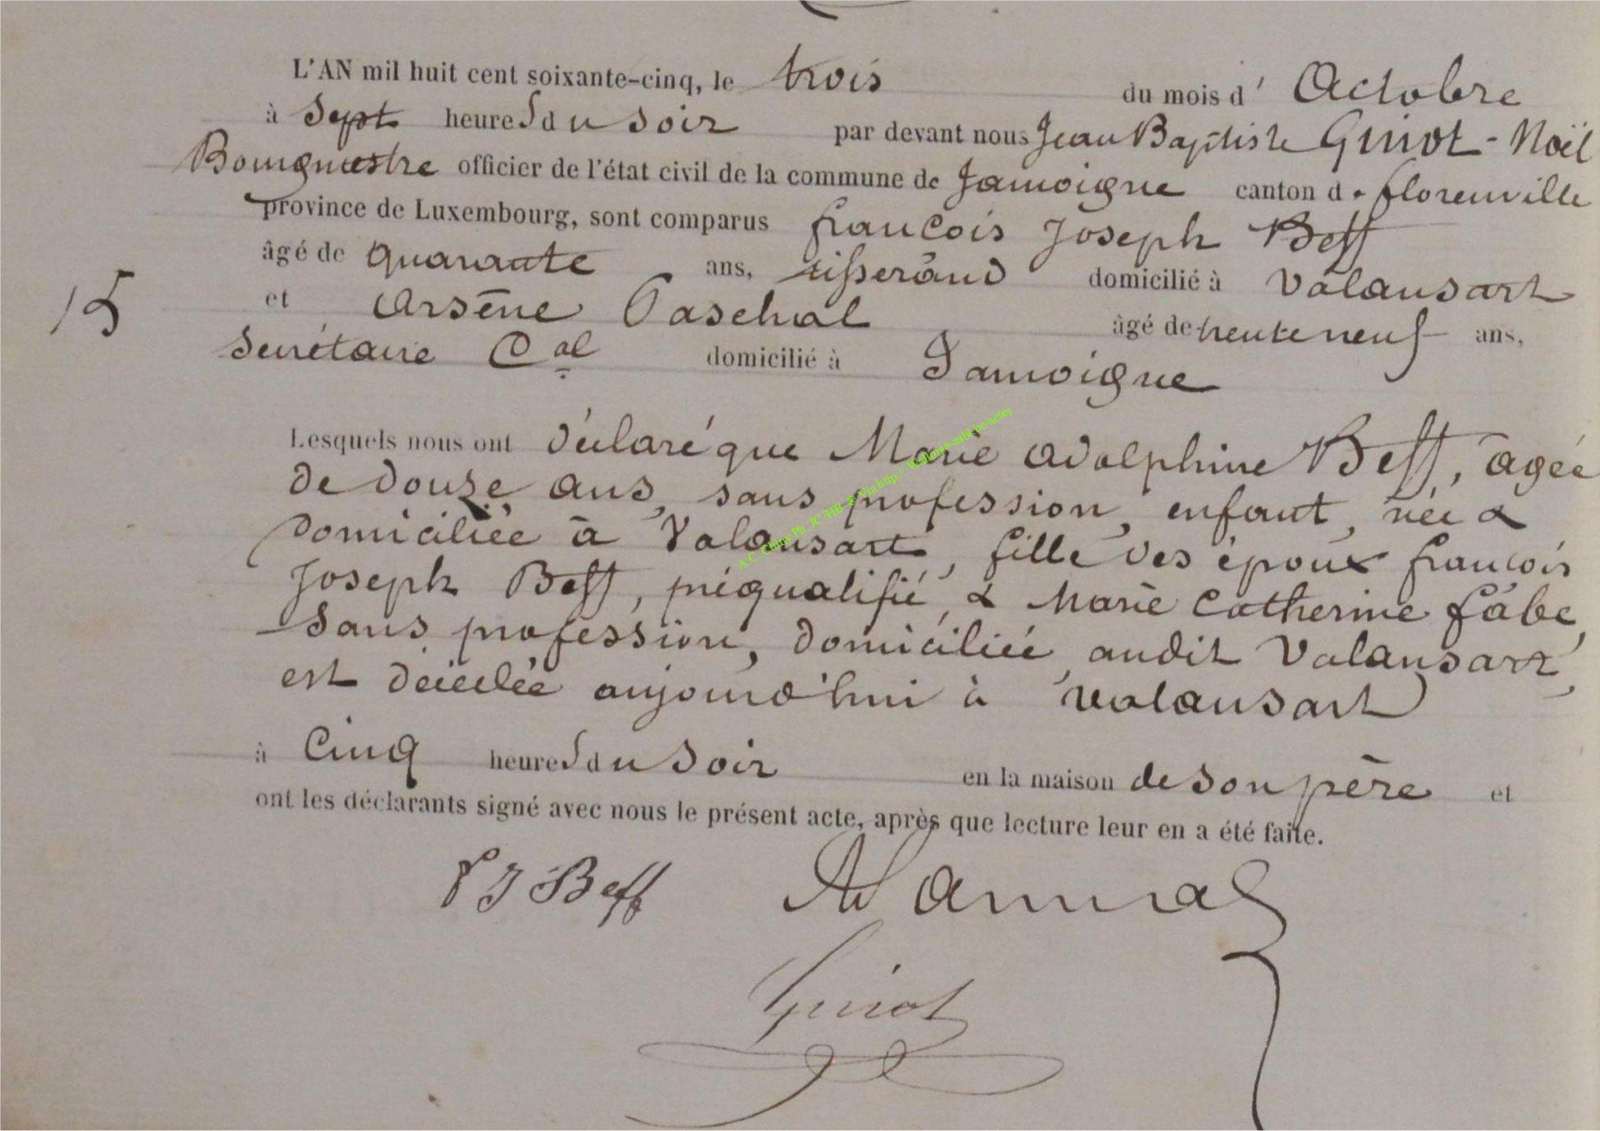 L'AN mil huit cent soixante-cinq, le trois du mois d' Octobre
à Sept heures du soir par devant nous Jean Baptiste Guiot-Noël
Bourgmestre officier de l'état civil de la commune de Jamoigne canton d. florenville
province de Luxembourg, sont comparus françois Joseph Beff
âgé de quarante ans, tisserand domicilié à Valansart
15
et Arsène Paschal âgé de trente neuf ans,
Secrétaire Cal domicilié à Jamoigne
Lesquels nous ont déclaré que Marie Adolphine Beff, âgée
de douze ans, sans profession, enfant, née &
domiciliée à Valansart, fille des époux françois
Joseph Beff, préqualifié, & Marie Catherine fâbe,
Sans profession, domiciliée audit Valansart,
est décédée aujourd'hui à Valansart
à Cinq heures du Soir en la maison de son père et
ont les déclarants signé avec nous le présent acte, après que lecture leur en a été faite.
F J Beff
Guiot